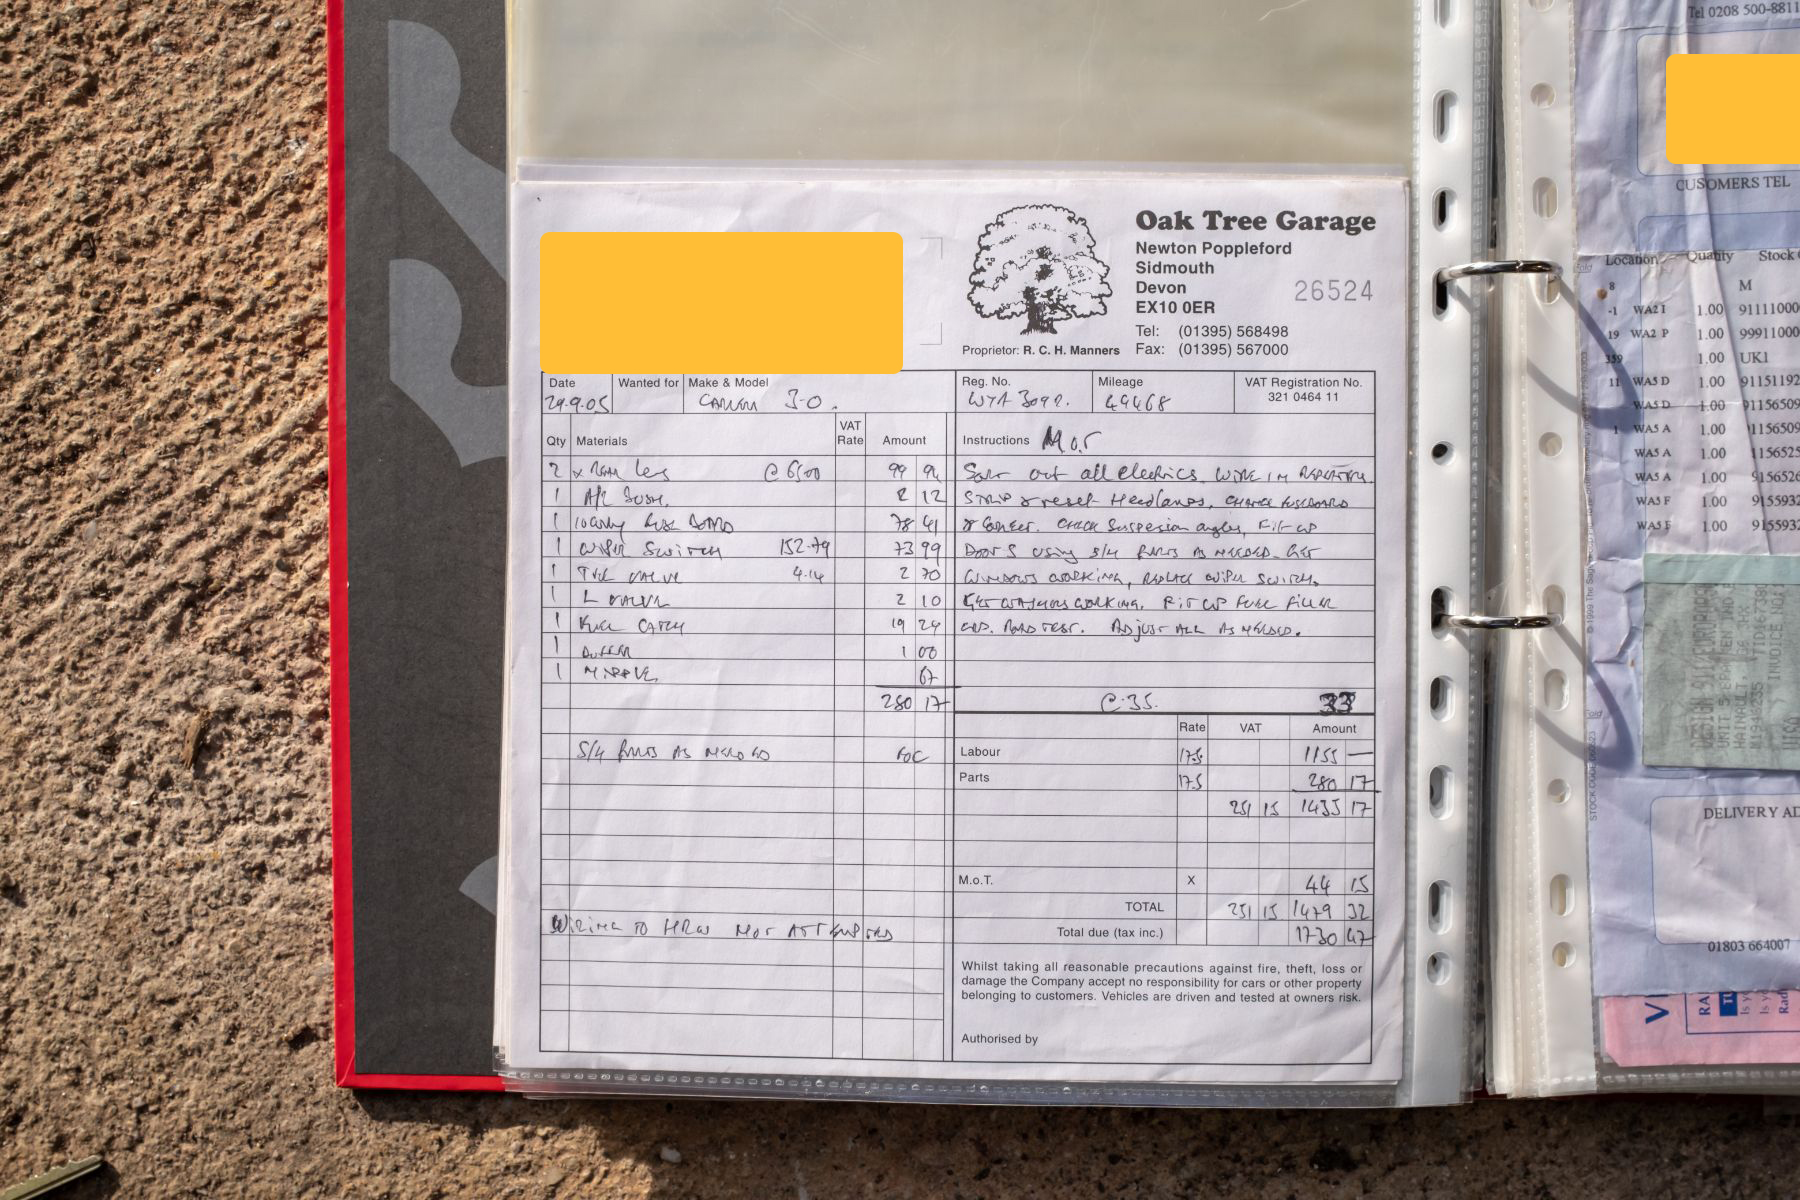 Oak Tree Garage
Newton Poppleford
Sidmouth
Devon
EX10 0ER
26524
Tel: (01395) 568498
Fax: (01395) 567000
Proprietor: R. C. H. Manners
Date
Wanted for
Make & Model
Reg. No.
Mileage
VAT Registration No.
29.9.05
3-0.
49468
321 0464 11
Qty
Materials
VAT Rate
Amount
Instructions
M.o.T
2 x 99 94
Sort out all electrics. WIRE IN
1 12
STRIP & reset Headlamps, CHANGE FUSEBOARD
1 78 41
CHECK Suspension angles, Fit up
1 WIPER SWITCH 152.79 73 99
Doors using S/H PARTS AS NEEDED. GET
1 VALVE 4.14 2 70
WINDOWS WORKING, REPLACE WIPER SWITCH.
1 VALVE 2 10
GET WASHERS WORKING. FIT UP FUEL FILLER
1 FUEL CATCH 19 24
ROAD TEST. ADJUST ALL AS NEEDED.
1 BUFFER 1 00
1 NIPPLE 67
280 17
@ 35. 33
Rate
VAT
Amount
S/H PARTS AS NEEDED FOC
Labour 17.5 1155 —
Parts 17.5 280 17
251 15 1435 17
M.o.T. X 44 15
TOTAL 251 15 1479 32
WIRING TO HRW NOT ATTEMPTED
Total due (tax inc.) 1730 47
Whilst taking all reasonable precautions against fire, theft, loss or
damage the Company accept no responsibility for cars or other property
belonging to customers. Vehicles are driven and tested at owners risk.
Authorised by
Tel 0208 500-8811
CUSOMERS TEL
Location Quantity Stock
8 M
-1 WA2 I 1.00 91111000
19 WA2 P 1.00 99911000
359 1.00 UK1
11 WA5 D 1.00 91151192
WA5 D 1.00 91156509
1 WA5 A 1.00 91156509
WA5 A 1.00
WA5 A 1.00
WA5 F 1.00
WA5 F 1.00
INVOICE NO
DELIVERY AD
01803 664007